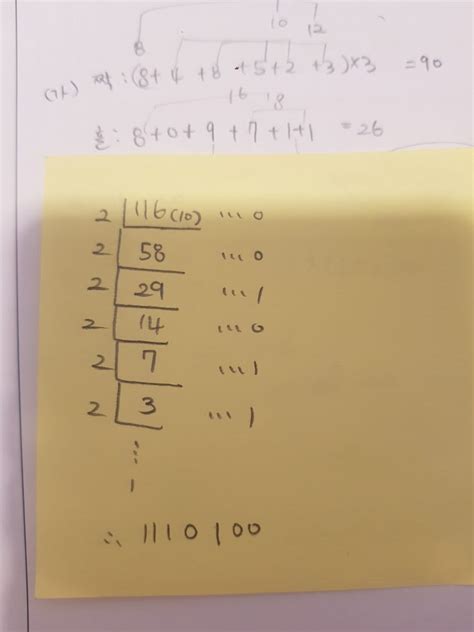 10 12
8
(가) 짝 : (8+4+8+5+2+3)×3 =90
16 18
홀 : 8+0+9+7+1+1 =26
2 116(10) ... 0
2 58 ... 0
2 29 ... 1
2 14 ... 0
2 7 ... 1
2 3 ... 1
⋮
1
∴ 1110100